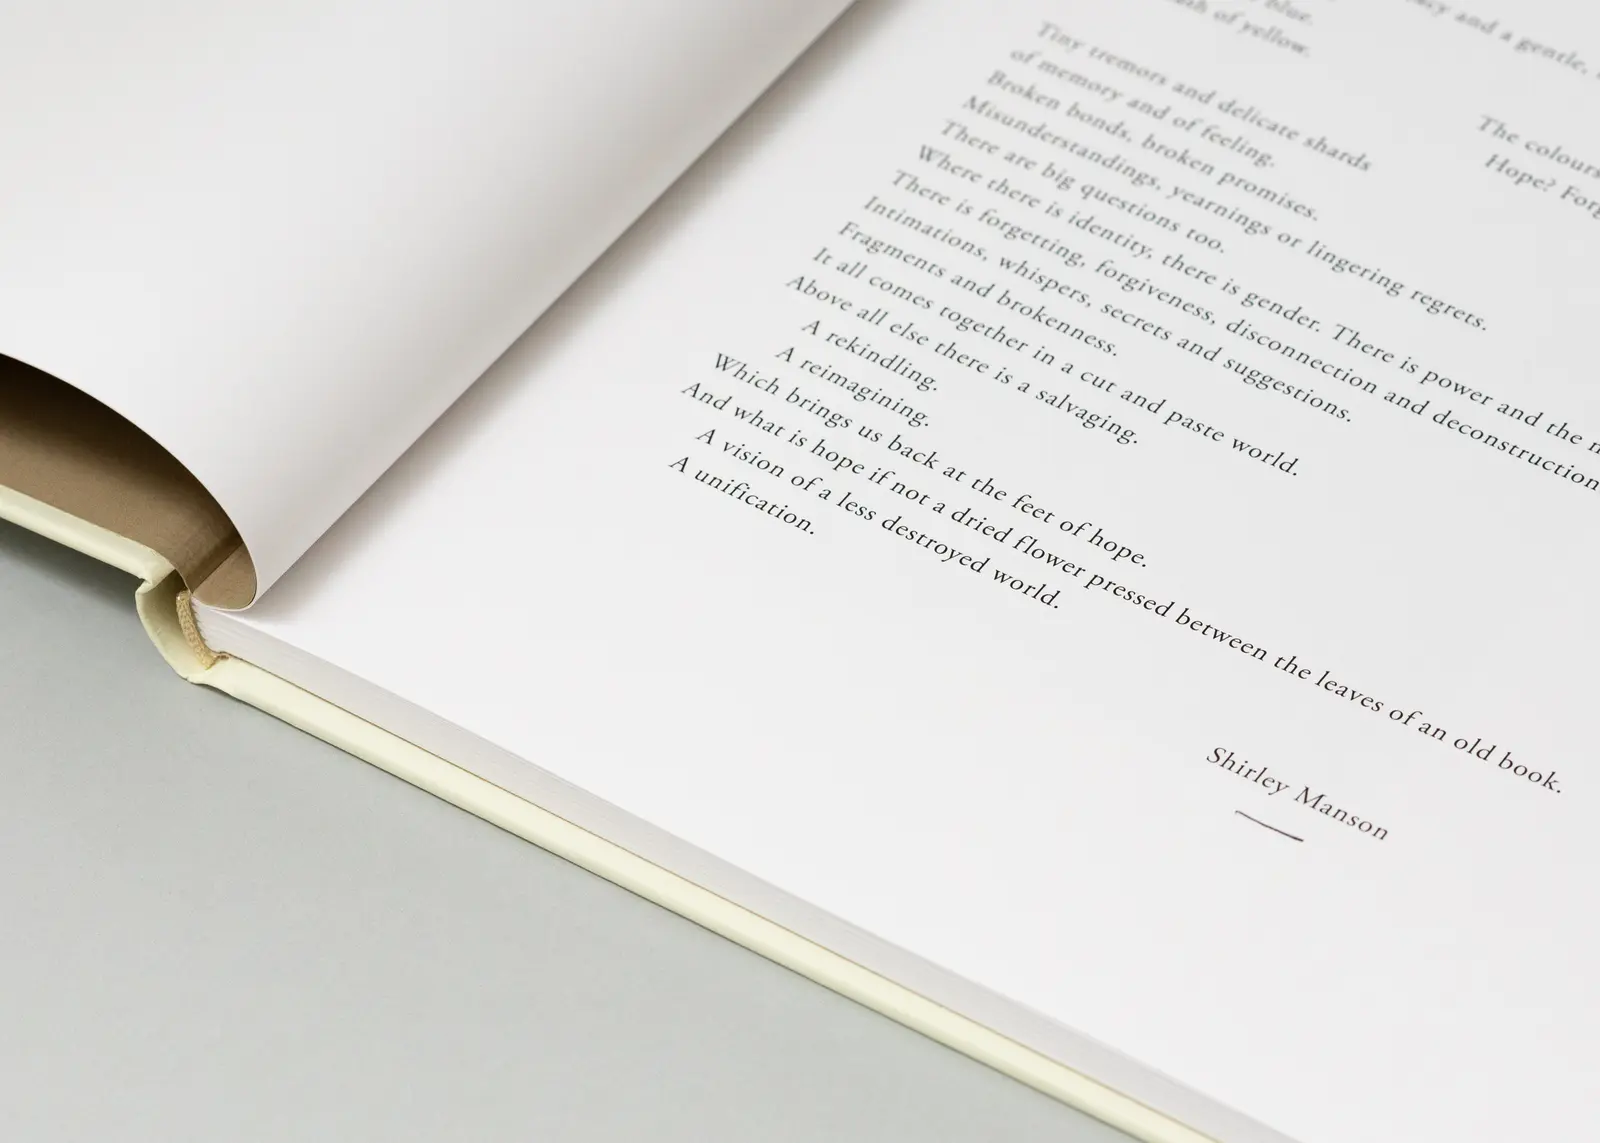 blue.
of yellow.
and a gentle,
Tiny tremors and delicate shards
of memory and of feeling.
Broken bonds, broken promises.
Misunderstandings, yearnings or lingering regrets.
There are big questions too.
Where there is identity, there is gender. There is power and the
There is forgetting, forgiveness, disconnection and deconstruction
Intimations, whispers, secrets and suggestions.
Fragments and brokenness.
It all comes together in a cut and paste world.
Above all else there is a salvaging.
A rekindling.
A reimagining.
Which brings us back at the feet of hope.
And what is hope if not a dried flower pressed between the leaves of an old book.
A vision of a less destroyed world.
A unification.
The colours
Hope?
Shirley Manson